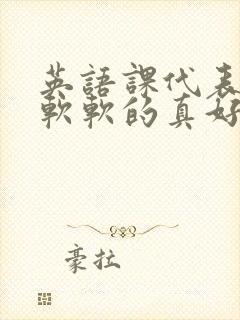 英語課代表
軟軟的真好
豪拉